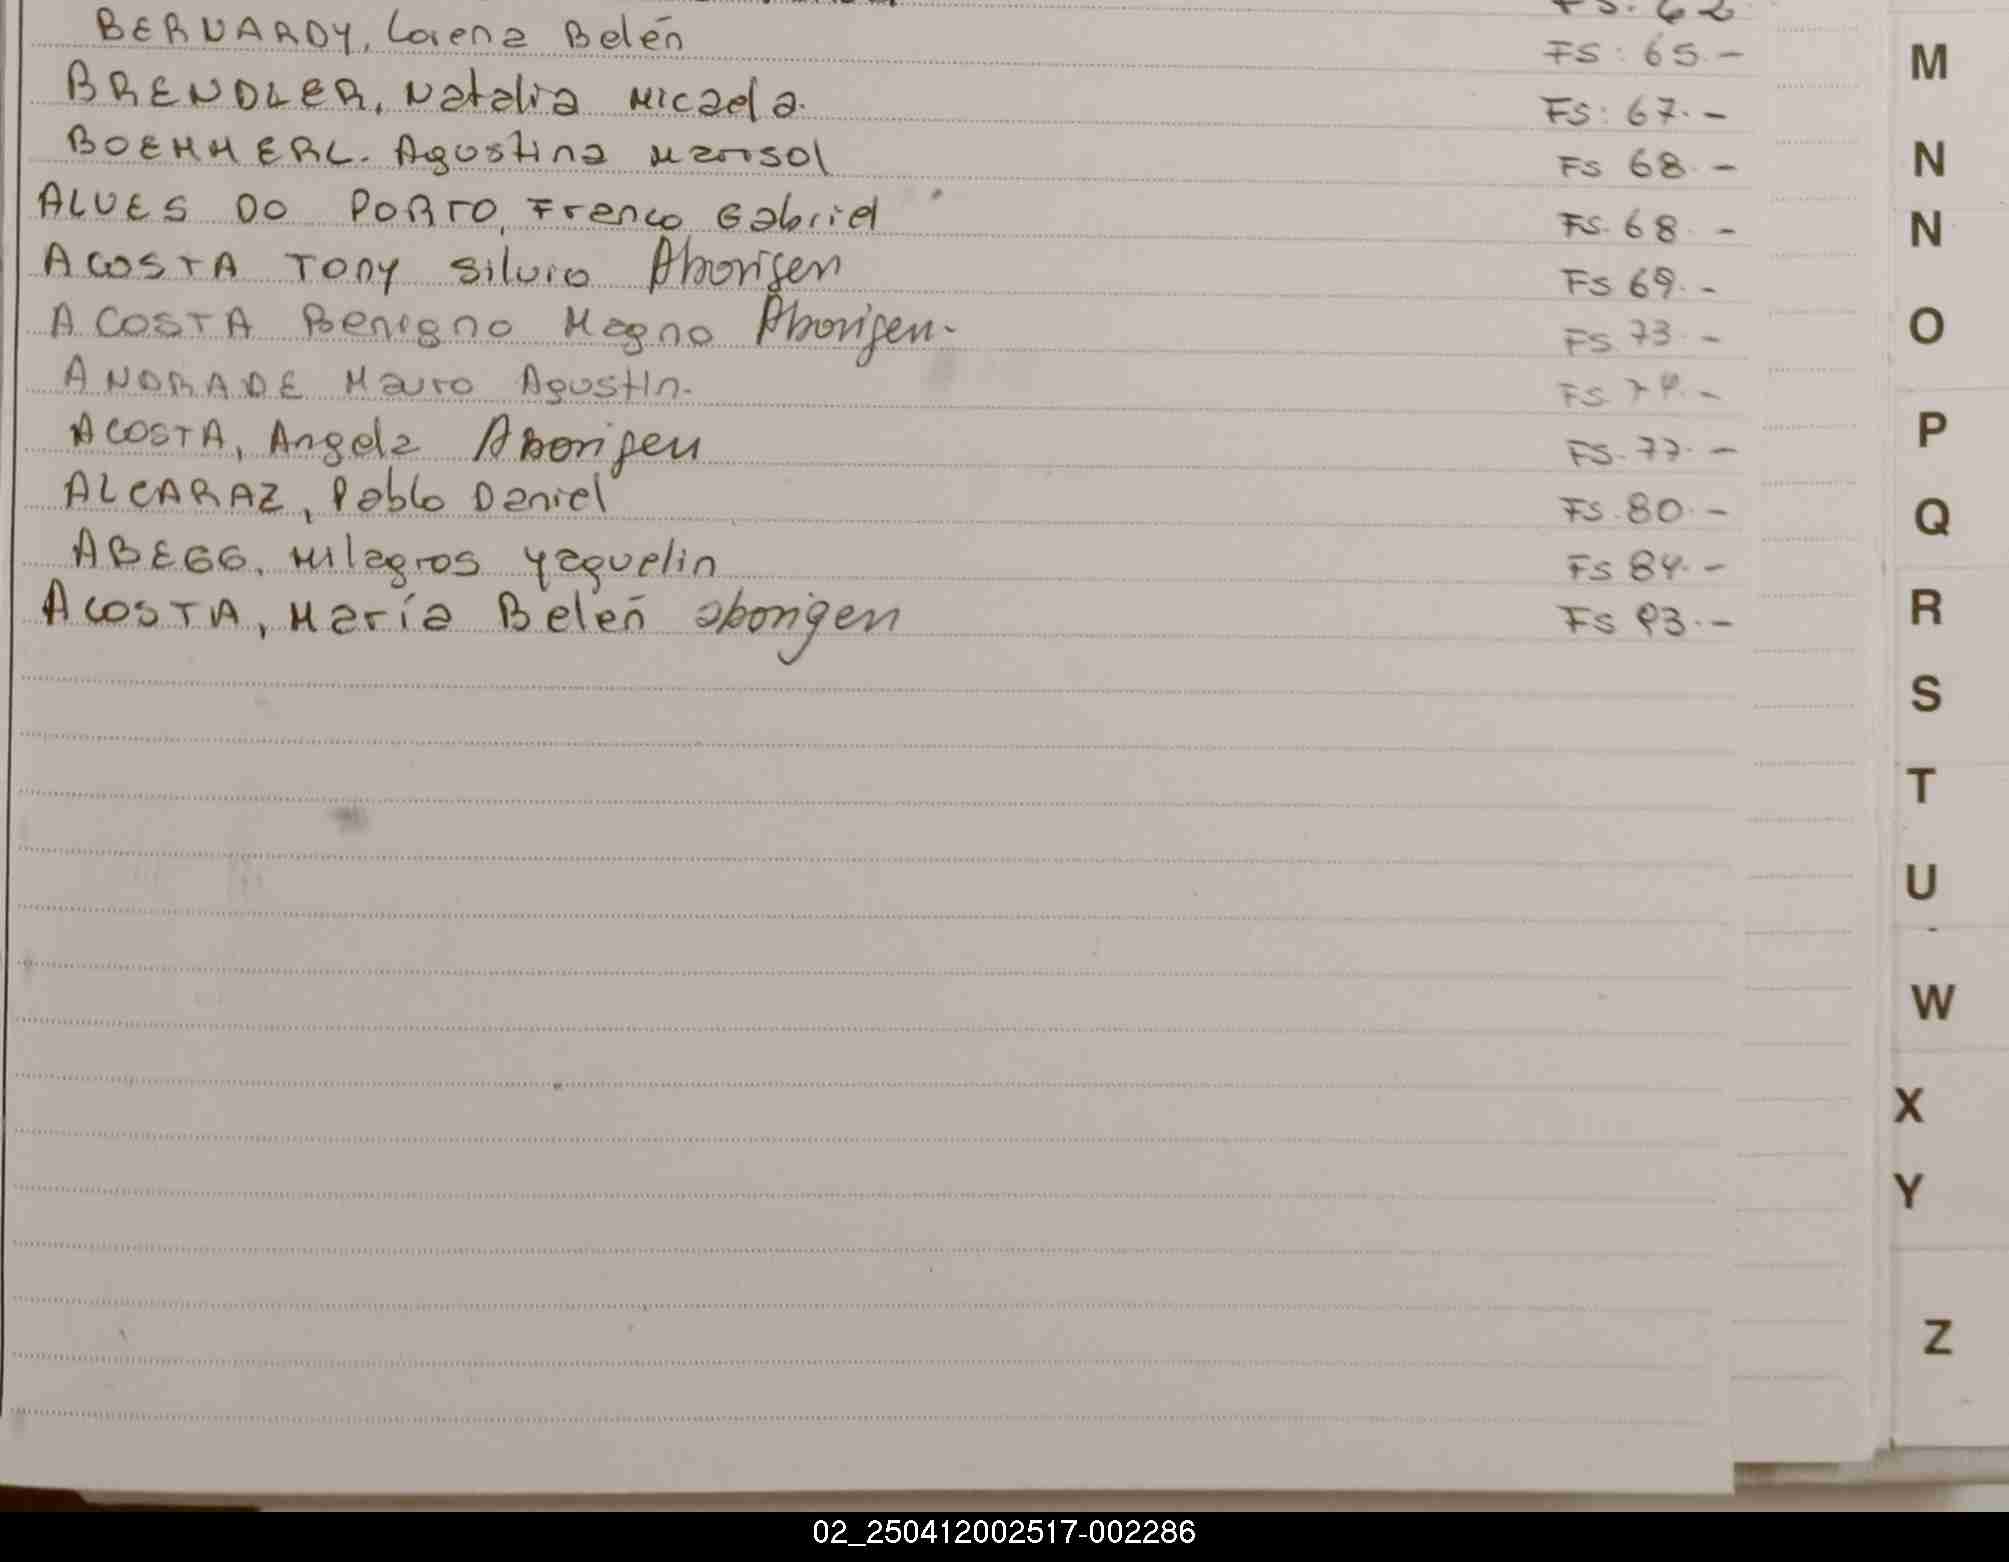 FS. 62
BERNARDY, Lorena Belén FS: 65.-
BRENDLER, Natalia Micaela. FS: 67.-
BOEHMERL. Agustina Marisol FS 68.-
ALVES DO PORTO, Franco Gabriel FS. 68.-
ACOSTA TONY Silvio Aborigen FS 69.-
ACOSTA Benigno Magno Aborigen.- FS 73.-
ANDRADE Mauro Agustin. FS 74.-
ACOSTA, Angela Aborigen FS. 77.-
ALCARAZ, Pablo Daniel FS. 80.-
ABEGG, Milagros Yaquelin FS 84.-
ACOSTA, María Belén aborigen FS 93.-
M
N
N
O
P
Q
R
S
T
U
W
X
Y
Z
02_250412002517-002286